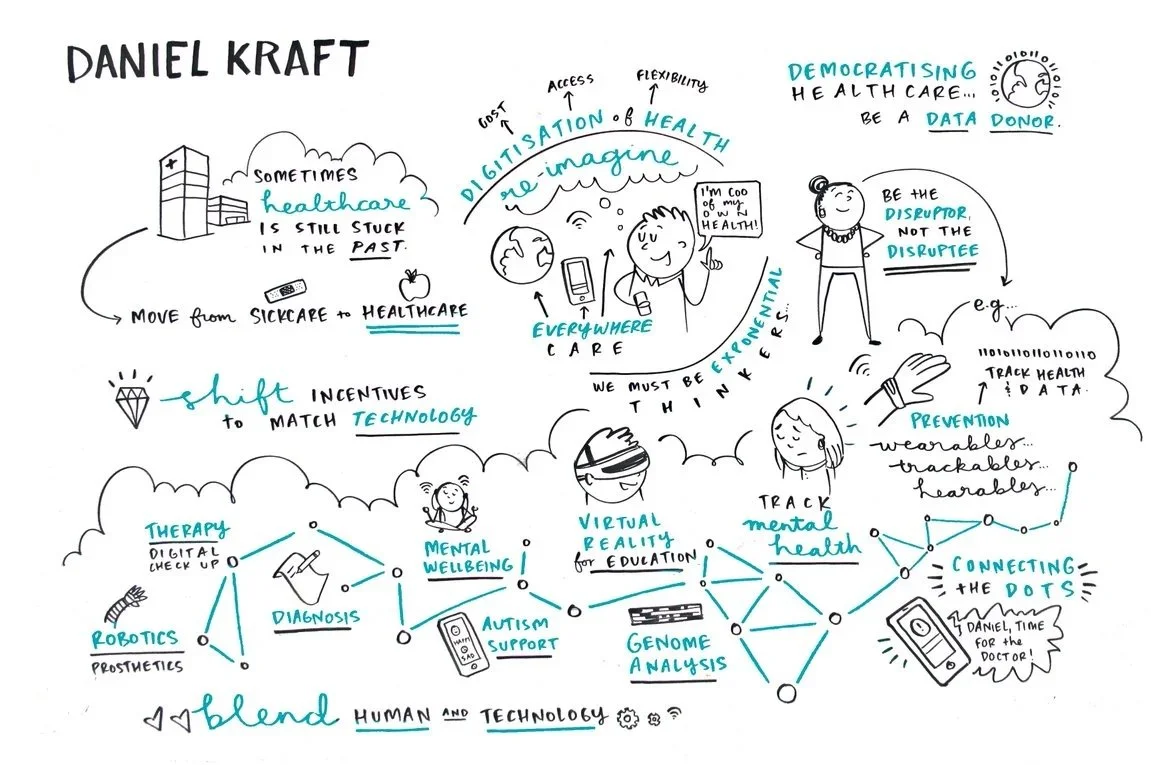 DANIEL KRAFT
SOMETIMES
healthcare
IS STILL STUCK
IN THE PAST.
MOVE from SICKCARE to HEALTHCARE
shift INCENTIVES
to MATCH TECHNOLOGY
COST
ACCESS
FLEXIBILITY
DIGITISATION of HEALTH
re-imagine
I'M COO
of my
OWN
HEALTH!
EVERYWHERE
CARE
WE MUST BE EXPONENTIAL
THINKERS...
DEMOCRATISING
HEALTHCARE...
BE A DATA DONOR.
BE THE
DISRUPTOR,
NOT THE
DISRUPTEE
e.g...
TRACK HEALTH
& DATA.
PREVENTION
wearables...
trackables...
hearables...
THERAPY
DIGITAL
CHECK UP
ROBOTICS
PROSTHETICS
DIAGNOSIS
MENTAL
WELLBEING
HAPPY
SAD
AUTISM
SUPPORT
VIRTUAL
REALITY
for EDUCATION
GENOME
ANALYSIS
TRACK
mental
health
CONNECTING
the DOTS
DANIEL, TIME
FOR the
DOCTOR!
blend HUMAN AND TECHNOLOGY